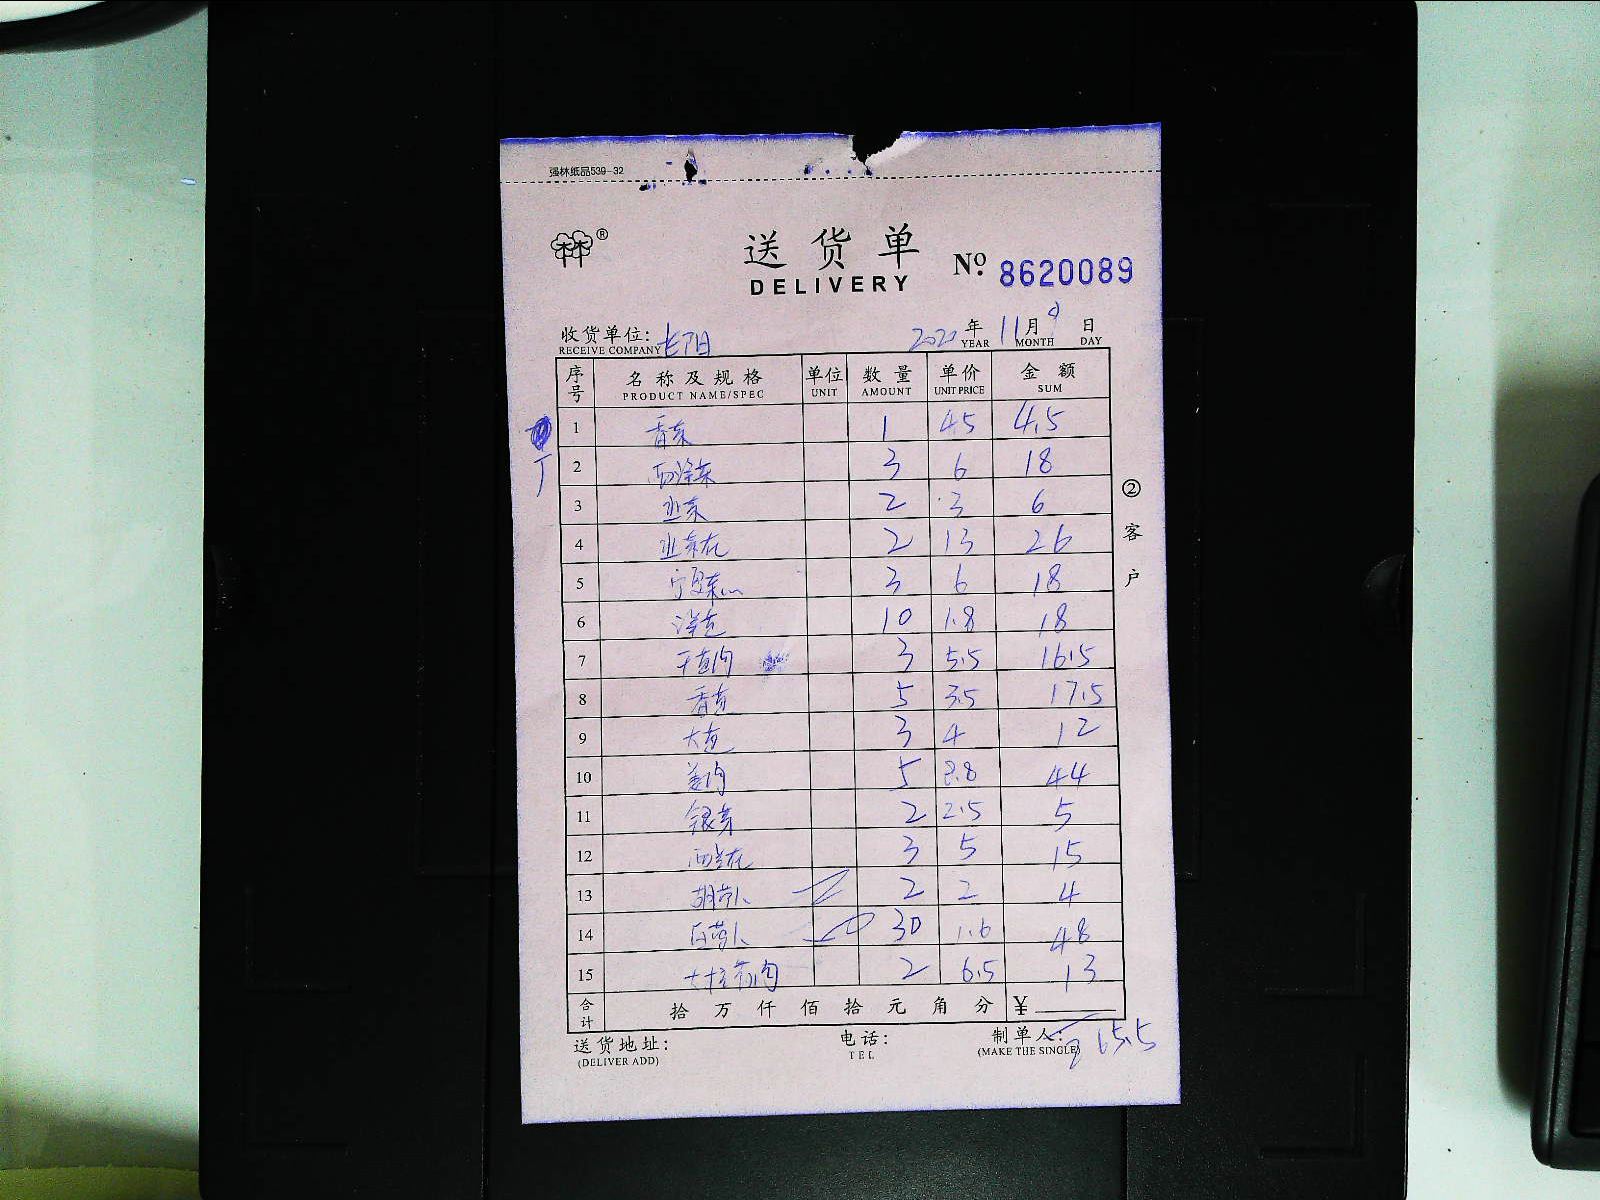 强林纸品539-32
®
送货单
DELIVERY
No. 8620089
收货单位: 长阳 2022年11月9日
RECEIVE COMPANY YEAR MONTH DAY
序号 名称及规格 单位 数量 单价 金额
PRODUCT NAME/SPEC UNIT AMOUNT UNIT PRICE SUM
1 香菜 1 4.5 4.5
2 西洋菜 3 6 18
3 韭菜 2 3 6
4 韭菜花 2 13 26
5 3 6 18
6 洋葱 10 1.8 18
7 干葱肉 3 5.5 16.5
8 香葱 5 3.5 17.5
9 大葱 3 4 12
10 姜肉 5 8.8 44
11 银芽 2 2.5 5
12 西兰花 3 5 15
13 胡萝卜 2 2 4
14 白萝卜 30 1.6 48
15 2 6.5 13
合计 拾万仟佰拾元角分 ¥
265.5
送货地址: 电话: 制单人:
(DELIVER ADD) TEL (MAKE THE SINGLE)
②客户